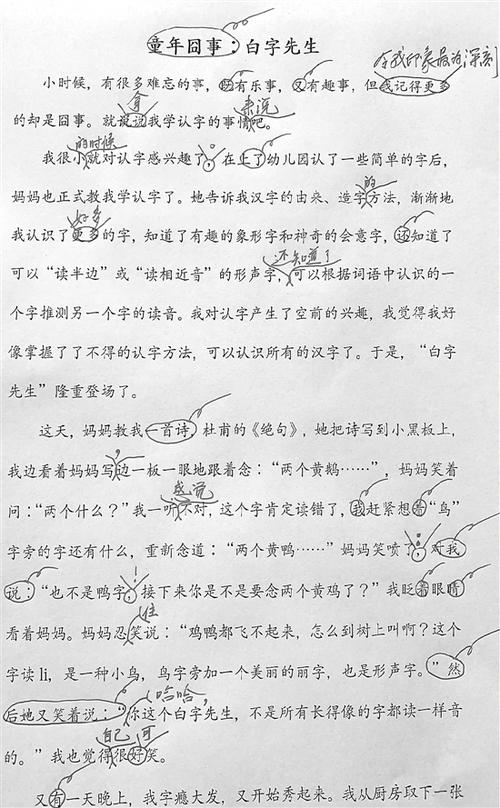 童年囧事：白字先生
令我印象最为深刻
小时候，有很多难忘的事，既有乐事，又有趣事，但我记得更多
拿 来说
的却是囧事。就说说我学认字的事情吧。
的时候
我很小就对认字感兴趣了。在上了幼儿园认了一些简单的字后，
的
妈妈也正式教我学认字了。她告诉我汉字的由来、造字方法，渐渐地
好多
我认识了更多的字，知道了有趣的象形字和神奇的会意字，还知道了
还知道了
可以“读半边”或“读相近音”的形声字，可以根据词语中认识的一
个字推测另一个字的读音。我对认字产生了空前的兴趣，我觉得我好
像掌握了了不得的认字方法，可以认识所有的汉字了。于是，“白字
先生”隆重登场了。
这天，妈妈教我一首诗，杜甫的《绝句》，她把诗写到小黑板上，
我边看着妈妈写边一板一眼地跟着念：“两个黄鹅……”，妈妈笑着
感觉
问：“两个什么？”我一听不对，这个字肯定读错了，我赶紧想着“鸟”
字旁的字还有什么，重新念道：“两个黄鸭……”妈妈笑喷了。对我
说：“也不是鸭字。接下来你是不是要念两个黄鸡了？”我眨着眼睛
住
看着妈妈。妈妈忍笑说：“鸡鸭都飞不起来，怎么到树上叫啊？这个
字读li，是一种小鸟，鸟字旁加一个美丽的丽字，也是形声字。”然
哈哈，
后她又笑着说：“你这个白字先生，不是所有长得像的字都读一样音
自己 可
的。”我也觉得很好笑。
又有一天晚上，我字瘾大发，又开始秀起来。我从厨房取下一张